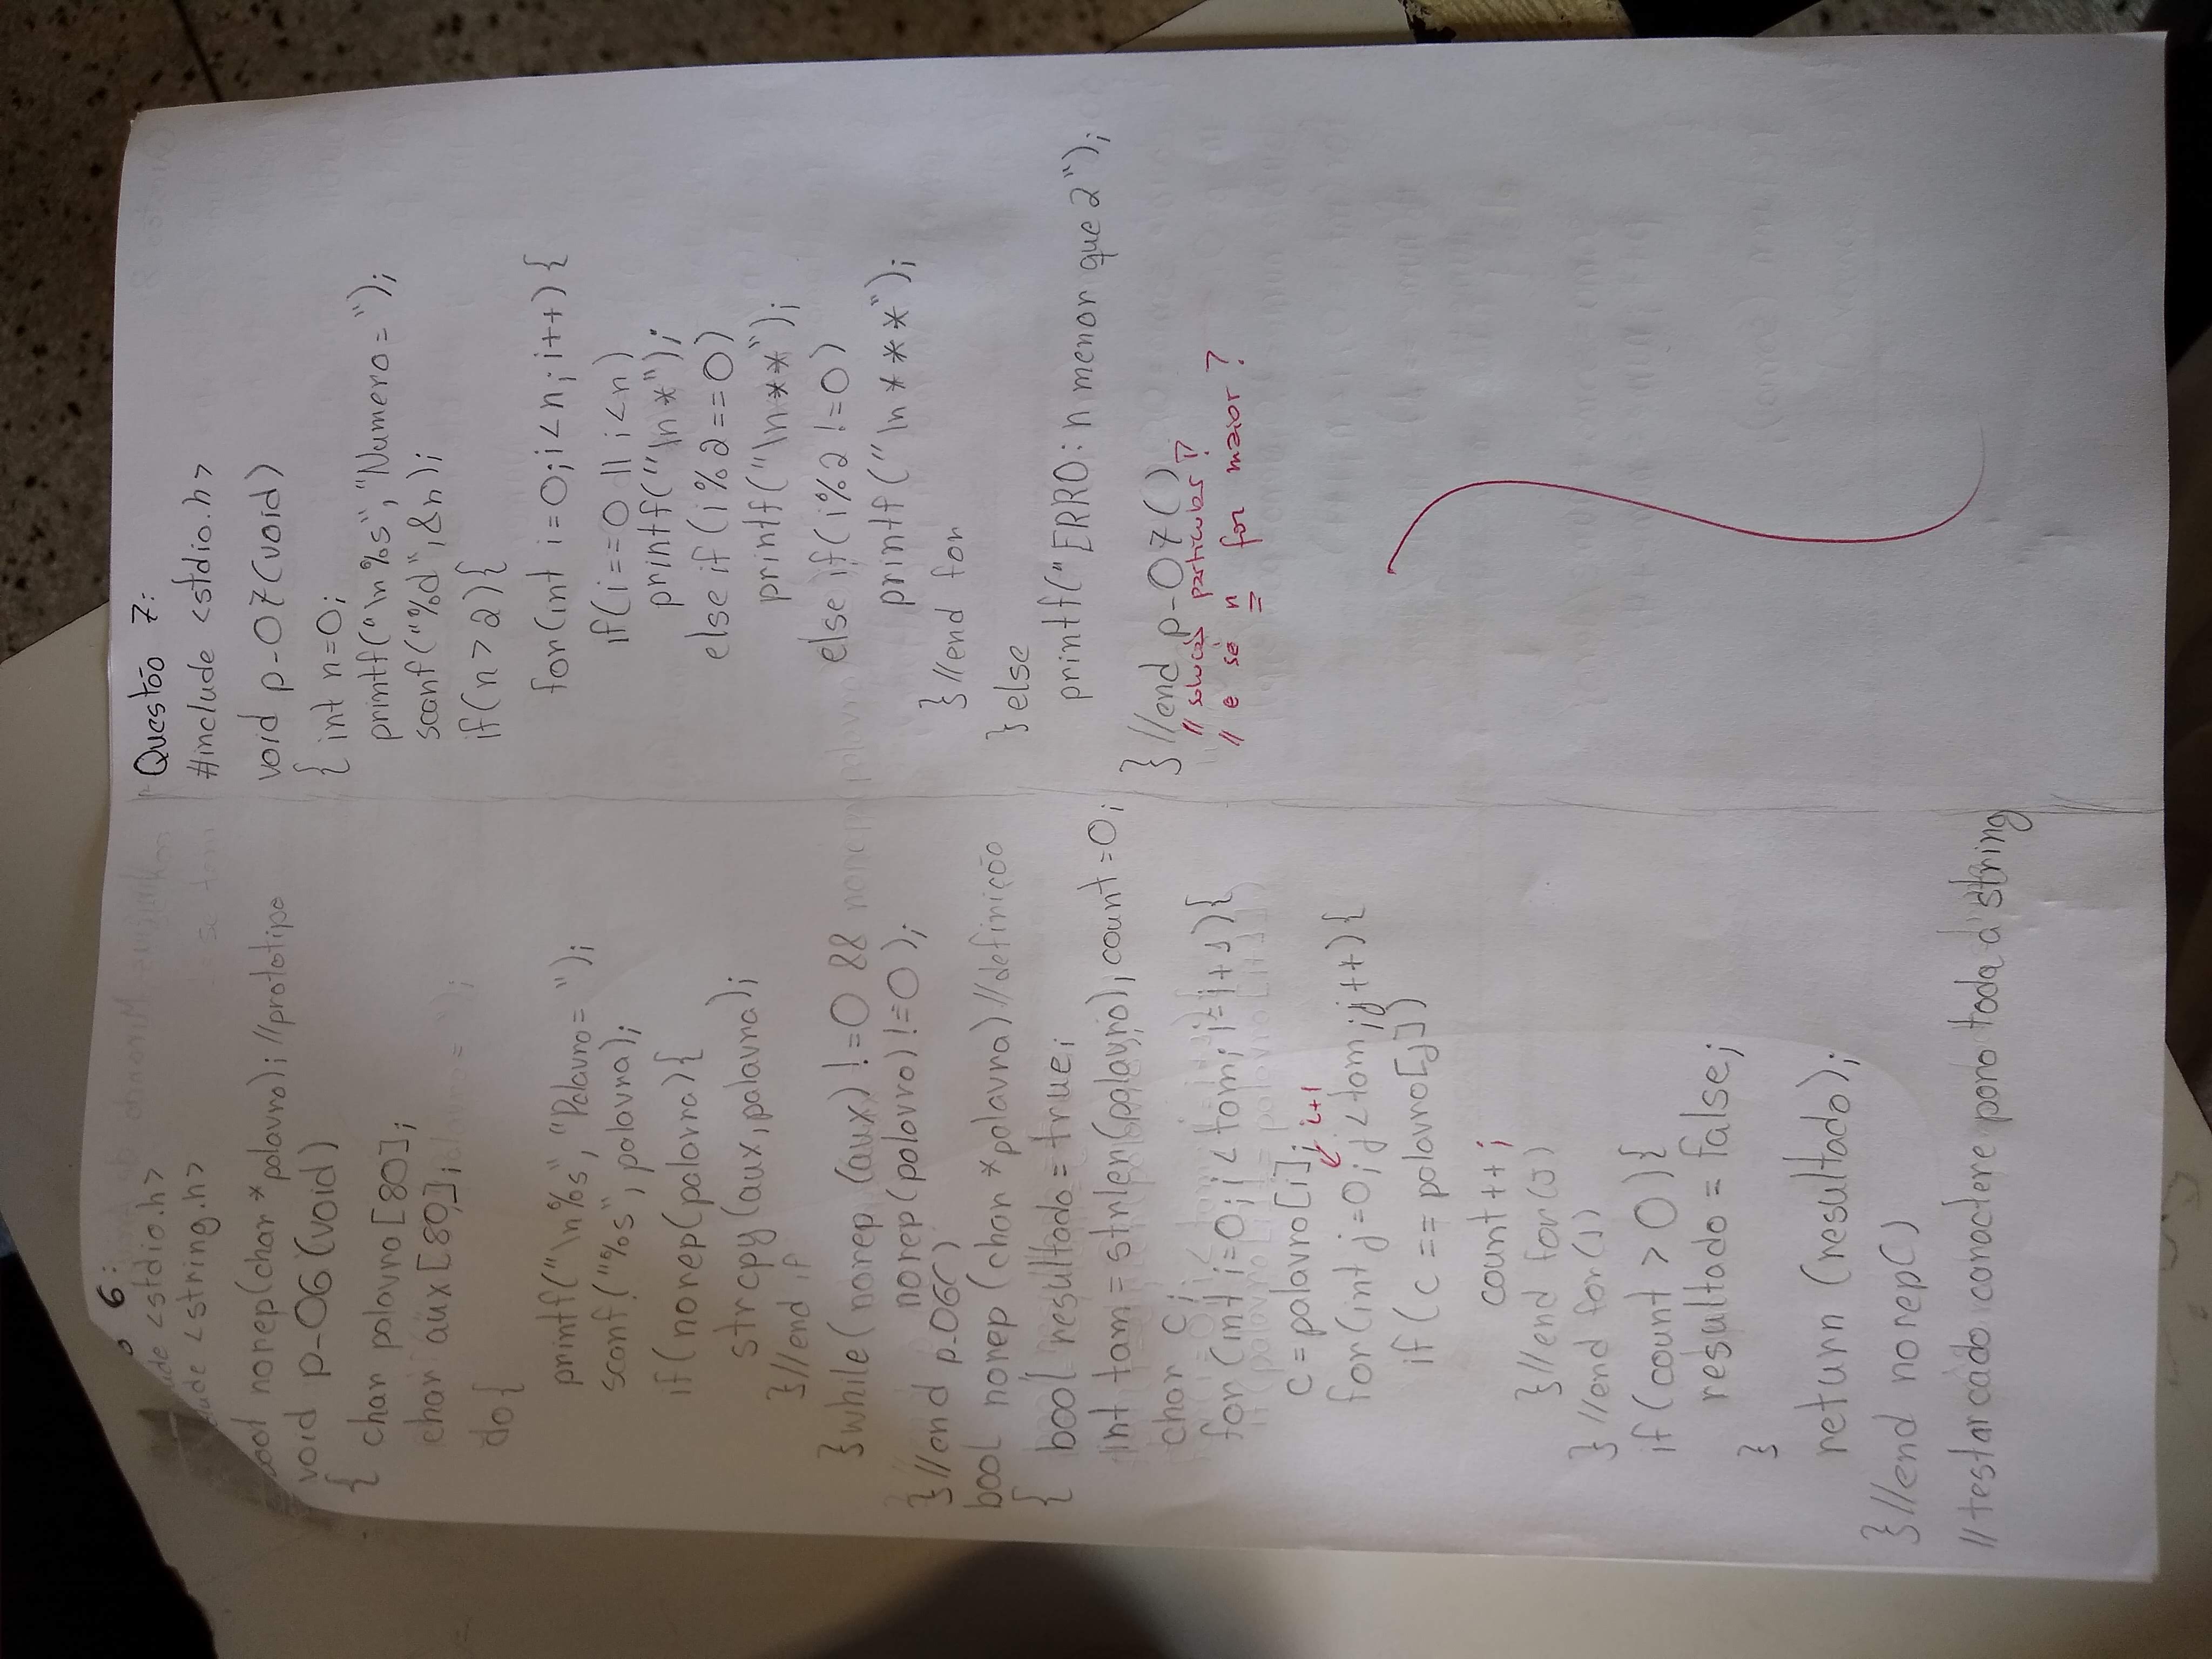 6:
<stdio.h>
<string.h>
bool norep(char *palavra); //prototipo
void p-06(void)
{ char palavra[80];
char aux[80];
do{
printf("\n%s", "Palavra= ");
scanf("%s", palavra);
if(norep(palavra){
strcpy(aux, palavra);
}//end if
}while(norep(aux)!=0 &&
norep(palavra)!=0);
}//end p-06()
bool norep(char *palavra)//definição
{
bool resultado=true;
int tam = strlen(palavra), count=0;
char c;
for(int i=0;i<tam;i=i+1){
c=palavra[i]; i+1
for(int j=0;j<tam;j++){
if(c == palavra[j])
count++;
}//end for(J)
}//end for(J)
if(count > 0){
resultado = false;
}
return (resultado);
}//end norep()
//testar cada caractere para toda string
Questão 7:
#include <stdio.h>
void p-07(void)
{ int n=0;
printf("\n%s", "Numero= ");
scanf("%d", &n);
if(n>2){
for(int i=0;i<n;i++){
if(i==0 || i<n)
printf("\n*");
else if(i%2==0)
printf("\n**");
else if(i%2!=0)
printf("\n***");
}//end for
}else
printf("ERRO: n menor que 2");
}//end p-07()
// solução particular !?
// e se n for maior?